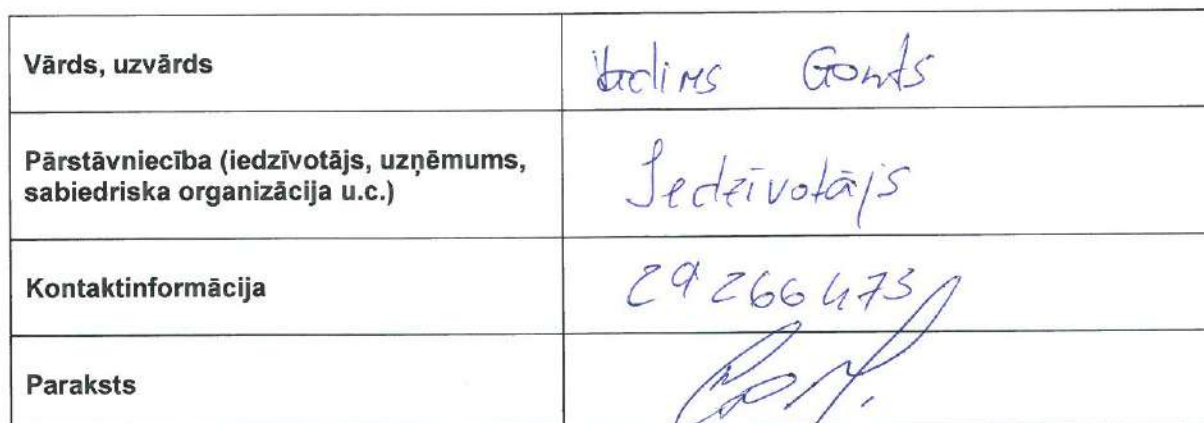 Vārds, uzvārds
Vadims Gonts
Pārstāvniecība (iedzīvotājs, uzņēmums,
sabiedriska organizācija u.c.)
Iedzīvotājs
Kontaktinformācija
29266473
Paraksts